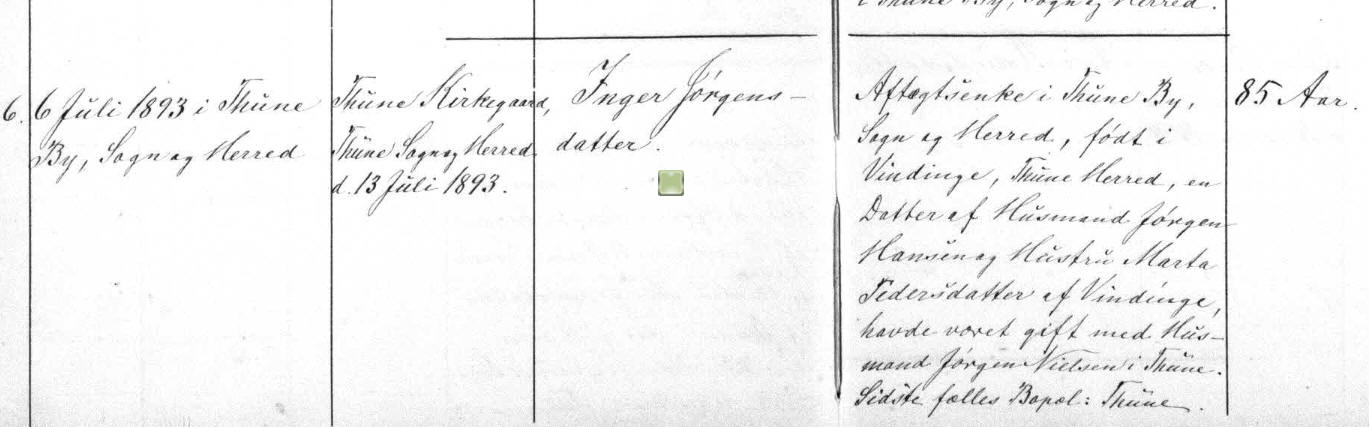 i Thune By, Sogn og Herred.
6.
6 Juli 1893 i Thune
By, Sogn og Herred
Thune Kirkegaard,
Thune Sogn og Herred
d. 13 Juli 1893.
Inger Jörgens-
datter.
Aftægtsenke i Thune By,
Sogn og Herred, födt i
Vindinge, Thune Herred, en
Datter af Husmand Jörgen
Hansen og Hustru Marta
Pedersdatter af Vindinge,
havde været gift med Hus-
mand Jörgen Nielsen i Thune.
Sidste fælles Bopæl: Thune.
85 Aar.